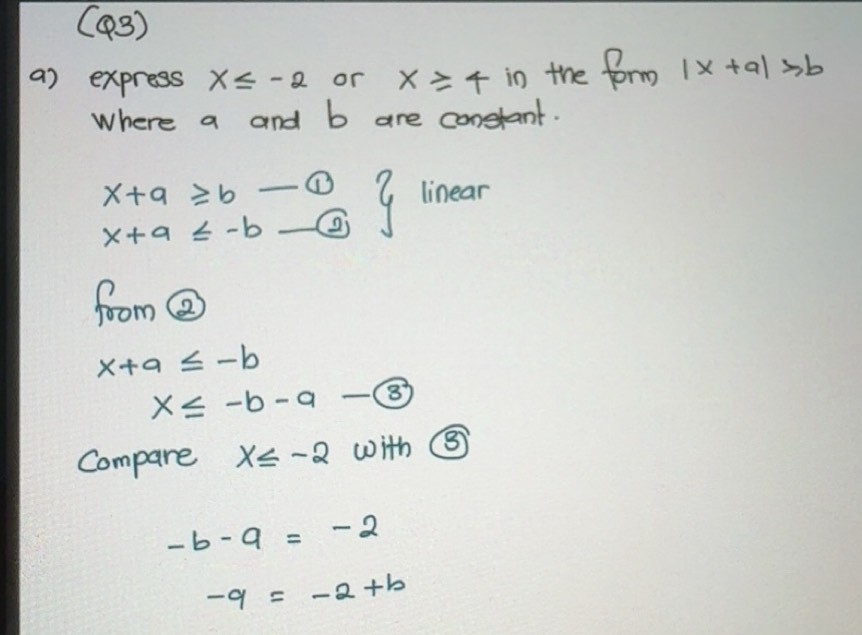 (Q3)
a) express x ≤ -2 or x ≥ 4 in the form |x + a| ≥ b
where a and b are constant.
x+a ≥ b — ① } linear
x+a ≤ -b — ②
from ②
x+a ≤ -b
x ≤ -b - a — ③
Compare x ≤ -2 with ③
-b - a = -2
-a = -2 + b